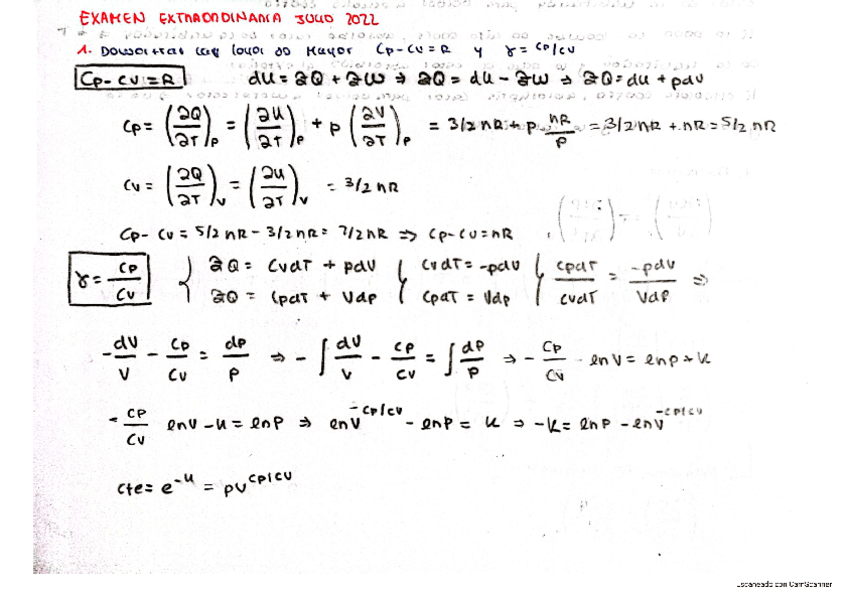 EXAMEN EXTRAORDINARIA JULIO 2022
1. Demostrar las leyes de Mayer Cp-Cv=R y γ=Cp/Cv
Cp-Cv=R dU=∂Q+∂W ⇒ ∂Q=dU-∂W ⇒ ∂Q=dU+pdV
Cp=(∂Q/∂T)p=(∂U/∂T)p+p(∂V/∂T)p = 3/2nR+p nR/p=3/2nR+nR=5/2nR
Cv=(∂Q/∂T)v=(∂U/∂T)v = 3/2nR
Cp-Cv=5/2nR-3/2nR=7/2nR ⇒ Cp-Cv=nR
γ=Cp/Cv { ∂Q=CvdT+pdV { CvdT=-pdV { CpdT/CvdT=-pdV/Vdp ⇒
∂Q=CpdT+Vdp CpdT=Vdp
-dV/V-Cp/Cv=dp/p ⇒ -∫dV/V-Cp/Cv=∫dp/p ⇒ -Cp/Cv-lnV=lnp+K
-Cp/Cv lnV-K=lnP ⇒ lnV^-Cp/Cv-lnP=K ⇒ -K=lnP-lnV^-Cp/Cv
cte=e^-K=pV^Cp/Cv
Escaneado con CamScanner